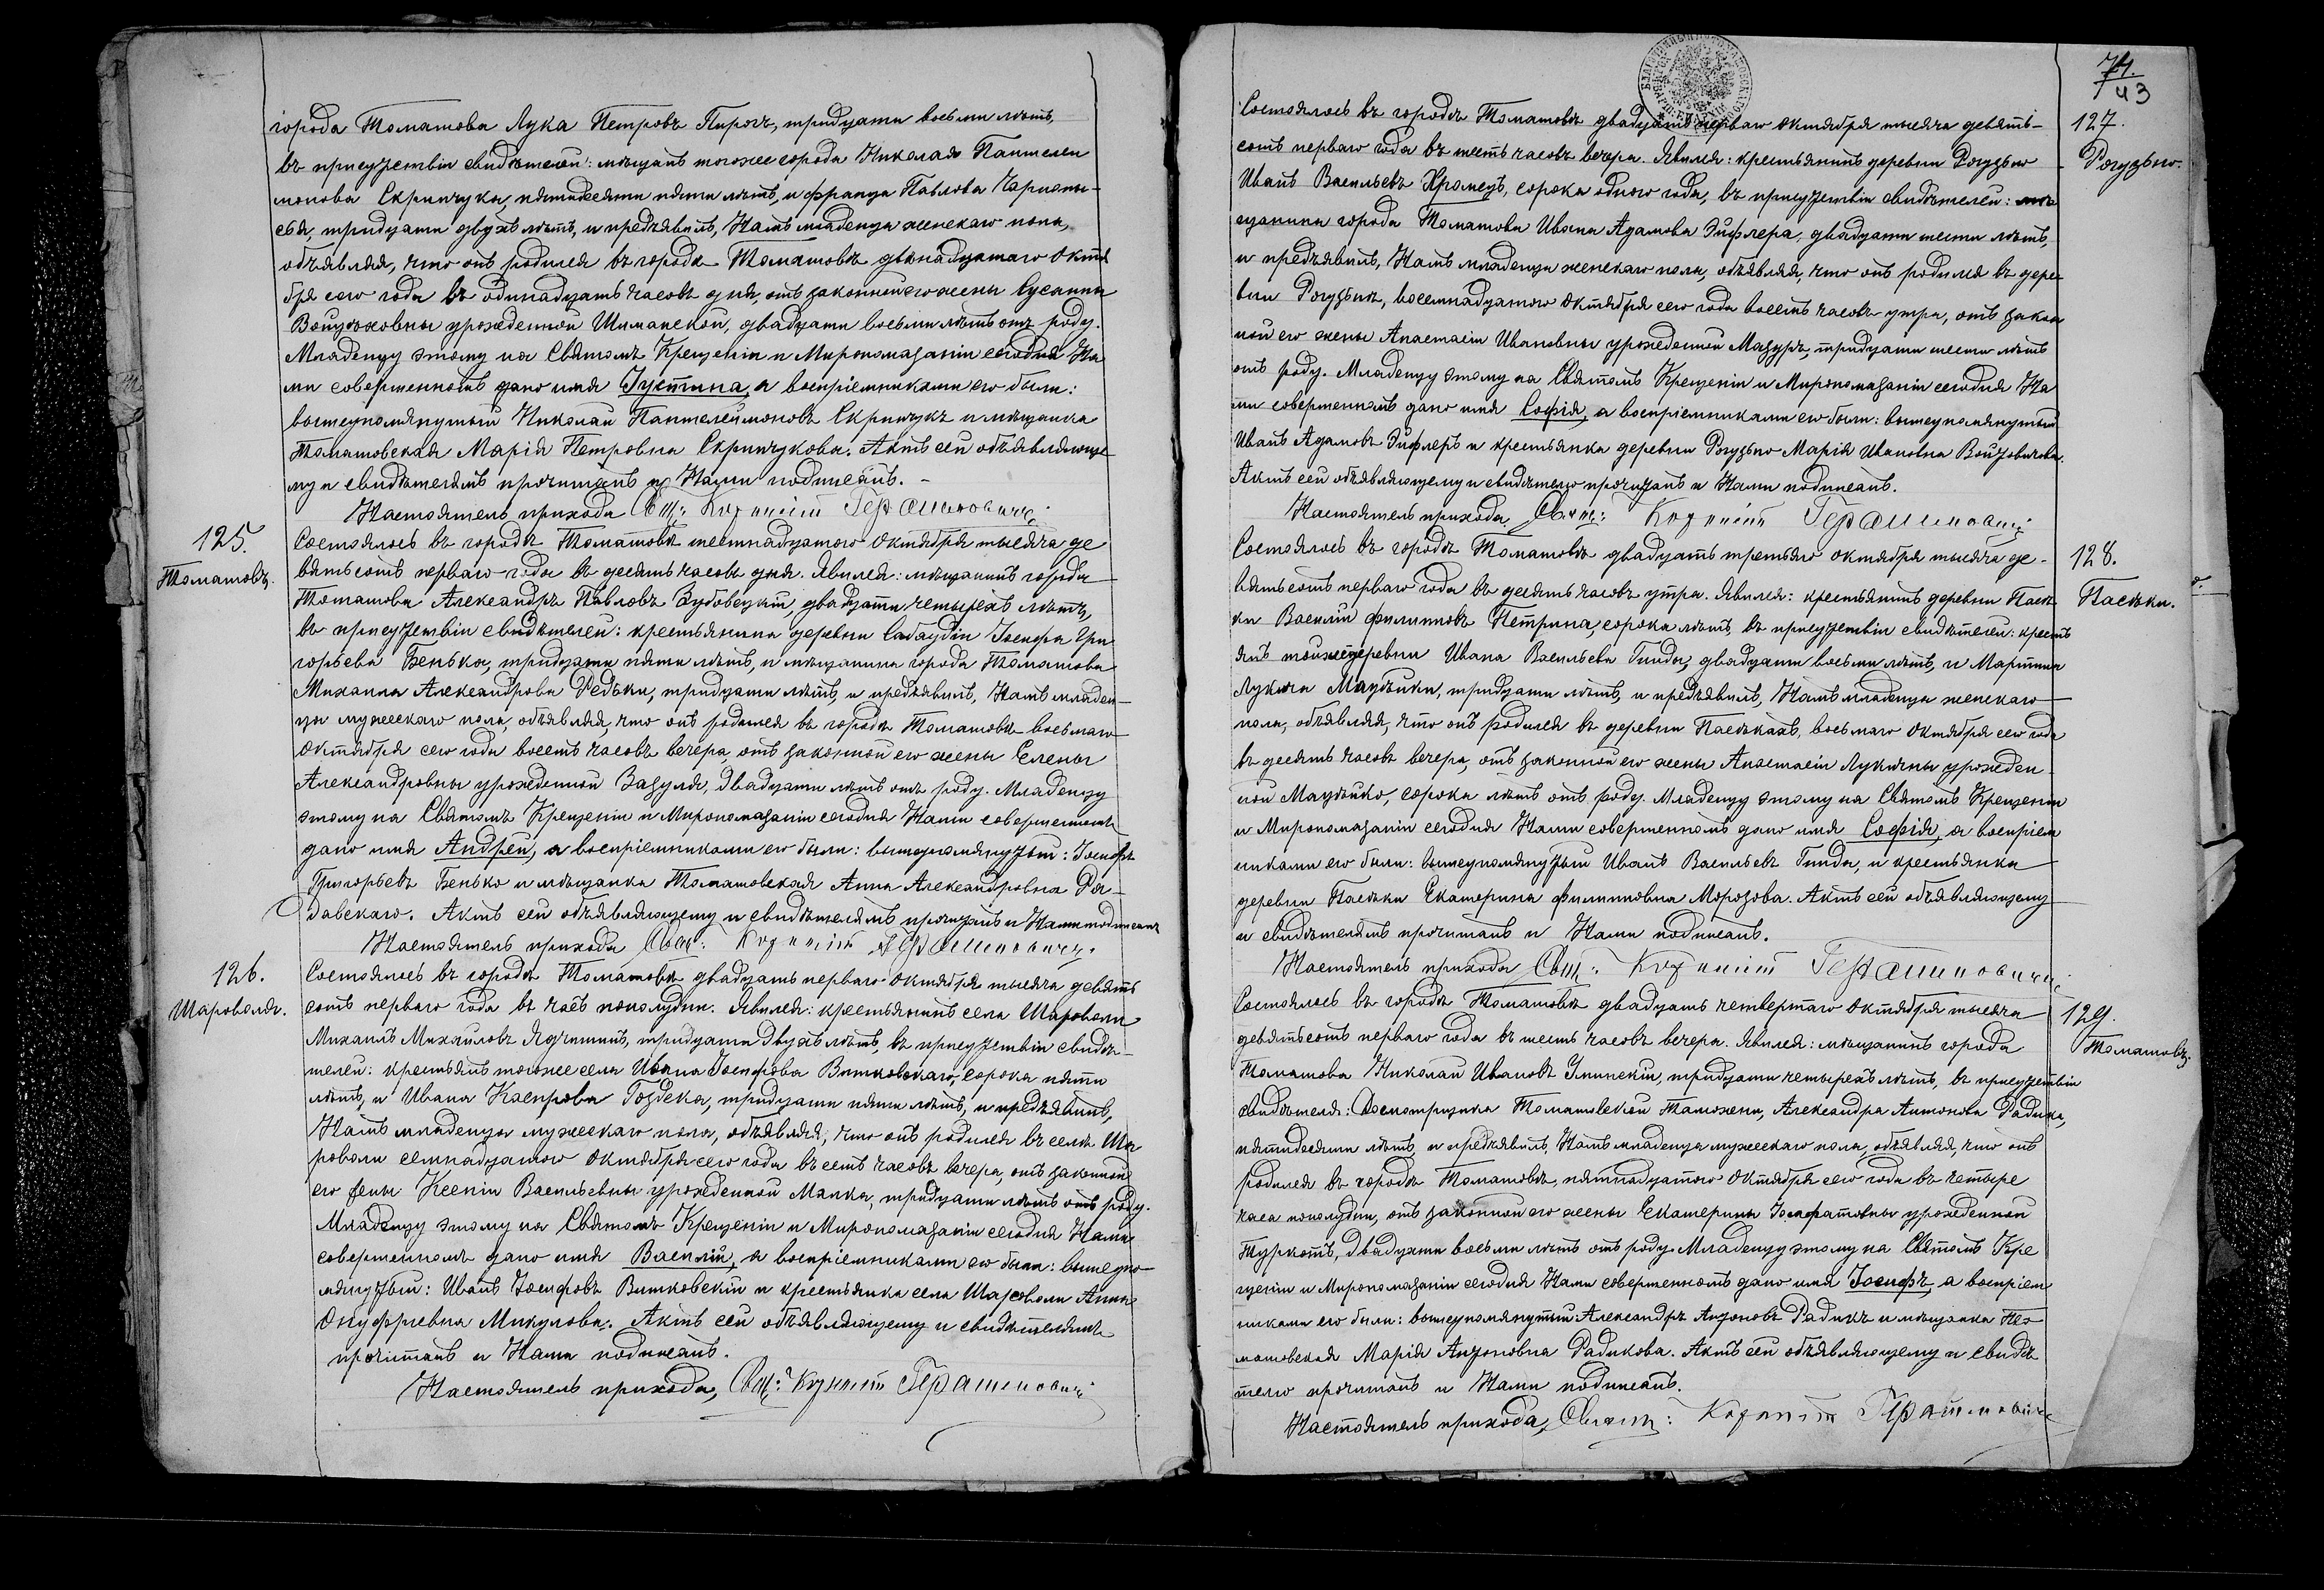 города Томашова Лука Петровъ Пирогъ, тридцати восьми лѣтъ,
въ присутствіи свидѣтелей: мѣщанъ тогоже города Николая Пантелей-
монова Скринчука, пятидесяти пяти лѣтъ, и Франца Павлова
тридцати двухъ лѣтъ, и предъявилъ, Намъ младенца женскаго пола,
объявляя, что онъ родился въ городѣ Томашовѣ двѣнадцатаго Октя
бря сего года въ одинадцать часовъ дня, отъ законной его жены Сусанны
Войцѣховны урожденной Шиманской, двадцати восьми лѣтъ отъ роду.
Младенцу этому на Святомъ Крещеніи и Миропомазаніи сегодня На
ми совершенномъ дано имя Іустина, а воспріемниками его были:
вышеупомянутый Николай Пантелеймоновъ Скринчукъ и мѣщанка
Томашовская Марія Петровна Скринчукова. Актъ сей объявляюще
му и свидѣтелямъ прочитанъ и Нами подписанъ. -
Настоятель прихода Свщ: Герашимовичъ
125.
Томашовъ.
Состоялось въ городѣ Томашовѣ шестнадцатаго Октября тысяча де
вятьсотъ перваго года въ десять часовъ дня. Явился: мѣщанинъ города
Томашова Александръ Павловъ Зубовецкій, двадцати четырехъ лѣтъ,
въ присутствіи свидѣтелей: крестьянина деревни Сабаудіи Іосифа Гри
горьева Бенька, тридцати пяти лѣтъ, и мѣщанина города Томашова
Михаила Александрова Редьки, тридцати лѣтъ, и предъявилъ, Намъ младен-
ца мужескаго пола, объявляя, что онъ родился въ городѣ Томашовѣ восьмаго
Октября сего года восемь часовъ вечера, отъ законной его жены Елены
Александровны урожденной Зазуля, двадцати лѣтъ отъ роду. Младенцу
этому на Святомъ Крещеніи и Миропомазаніи сегодня Нами совершенномъ
дано имя Андрей, а воспріемниками его были: вышеупомянутый: Іосифъ
Григорьевъ Бенько и мѣщанка Томашовская Анна Александровна Ра-
давскаго. Актъ сей объявляющему и свидѣтелямъ прочитанъ и Нами подписанъ
Настоятель прихода Свщ: Герашимовичъ
126.
Шароволя.
Состоялось въ городѣ Томашовѣ двадцать перваго Октября тысяча девять
сотъ перваго года въ часъ пополудни. Явился: крестьянинъ села Шароволи
Михаилъ Михайловъ Ячминъ, тридцати двухъ лѣтъ, въ присутствіи свидѣ-
телей: крестьянъ тогоже села Ивана Іосифова Витковскаго, сорока пяти
лѣтъ, и Ивана Каспрова Гоздека, тридцати пяти лѣтъ, и предъявилъ,
Намъ младенца мужескаго пола, объявляя, что онъ родился въ селѣ Ша
роволи семнадцатаго Октября сего года въ семь часовъ вечера, отъ законной
его жены Ксеніи Васильевны урожденной Малка, тридцати лѣтъ отъ роду.
Младенцу этому на Святомъ Крещеніи и Миропомазаніи сегодня Нами
совершенномъ дано имя Василій, а воспріемниками его были: вышеупо-
мянутый: Иванъ Іосифовъ Витковскій и крестьянка села Шароволи Анна
Онуфріевна Микулова. Актъ сей объявляющему и свидѣтелямъ
прочитанъ и Нами подписанъ.
Настоятель прихода, Свщ: Герашимовичъ
74.
43
127.
Рогузьно.
Состоялось въ городѣ Томашовѣ двадцать перваго Октября тысяча девять-
сотъ перваго года въ шесть часовъ вечера. Явился: крестьянинъ деревни Рогузьно
Иванъ Васильевъ Кромецъ, сорока одного года, въ присутствіи свидѣтелей: мѣ
щанина города Томашова Ивана Адамова Зифлера, двадцати шести лѣтъ,
и предъявилъ, Намъ младенца женскаго пола, объявляя, что онъ родился въ дере
вни Рогузьнѣ, восемнадцатаго Октября сего года восемь часовъ утра, отъ закон
ной его жены Анастасіи Ивановны урожденной Мазуръ, тридцати шести лѣтъ
отъ роду. Младенцу этому на Святомъ Крещеніи и Миропомазаніи сегодня На
ми совершенномъ дано имя Софія, а воспріемниками его были: вышеупомянутый
Иванъ Адамовъ Зифлеръ и крестьянка деревни Рогузьно Марія Ивановна Войтовичова.
Актъ сей объявляющему и свидѣтелю прочитанъ и Нами подписанъ.
Настоятель прихода, Свящ: Герашимовичъ
128.
Пасѣки.
Состоялось въ городѣ Томашовѣ двадцать третьяго октября тысяча де-
вятьсотъ перваго года въ десять часовъ утра. Явился: крестьянинъ деревни Пасѣ
ки Василій Филиповъ Петрина, сорока лѣтъ, въ присутствіи свидѣтелей: кресть
янъ тойже деревни Ивана Васильева Гинды, двадцати восьми лѣтъ, и Мартина
Лукича Мацѣйки, тридцати лѣтъ, и предъявилъ, Намъ младенца женскаго
пола, объявляя, что онъ родился въ деревни Пасѣкахъ, восьмаго Октября сего года
въ десять часовъ вечера, отъ законной его жены Анастасіи Лукичны урожден-
ной Мацѣйко, сорока лѣтъ отъ роду. Младенцу этому на Святомъ Крещеніи
и Миропомазаніи сегодня Нами совершенномъ дано имя Софія, а воспріем
никами его были: вышеупомянутый Иванъ Васильевъ Гинда, и крестьянка
деревни Пасѣки Екатерина Филиповна Морозова. Актъ сей объявляющему
и свидѣтелямъ прочитанъ и Нами подписанъ.
Настоятель прихода Свщ: Герашимовичъ
129.
Томашовъ.
Состоялось въ городѣ Томашовѣ двадцать четвертаго Октября тысяча
девятьсотъ перваго года въ шесть часовъ вечера. Явился: мѣщанинъ города
Томашова Николай Ивановъ Улинскій, тридцати четырехъ лѣтъ, въ присутствіи
свидѣтеля: Досмотрщика Томашовской Таможни, Александра Антонова Радика,
пятидесяти лѣтъ, и предъявилъ, Намъ младенца мужескаго пола, объявляя, что онъ
родился въ городѣ Томашовѣ, пятнадцатаго Октября сего года въ четыре
часа пополудни, отъ законной его жены Екатерины Іосафатовны урожденной
Туркотъ, двадцати восьми лѣтъ отъ роду. Младенцу этому на Святомъ Кре
щеніи и Миропомазаніи сегодня Нами совершенномъ дано имя Іосифъ, а воспріем
никами его были: вышеупомянутый Александръ Антоновъ Радикъ и мѣщанка То
машовская Марія Антоновна Радикова. Актъ сей объявляющему и свидѣ
телю прочитанъ и Нами подписанъ.
Настоятель прихода, Свящ: Герашимовичъ